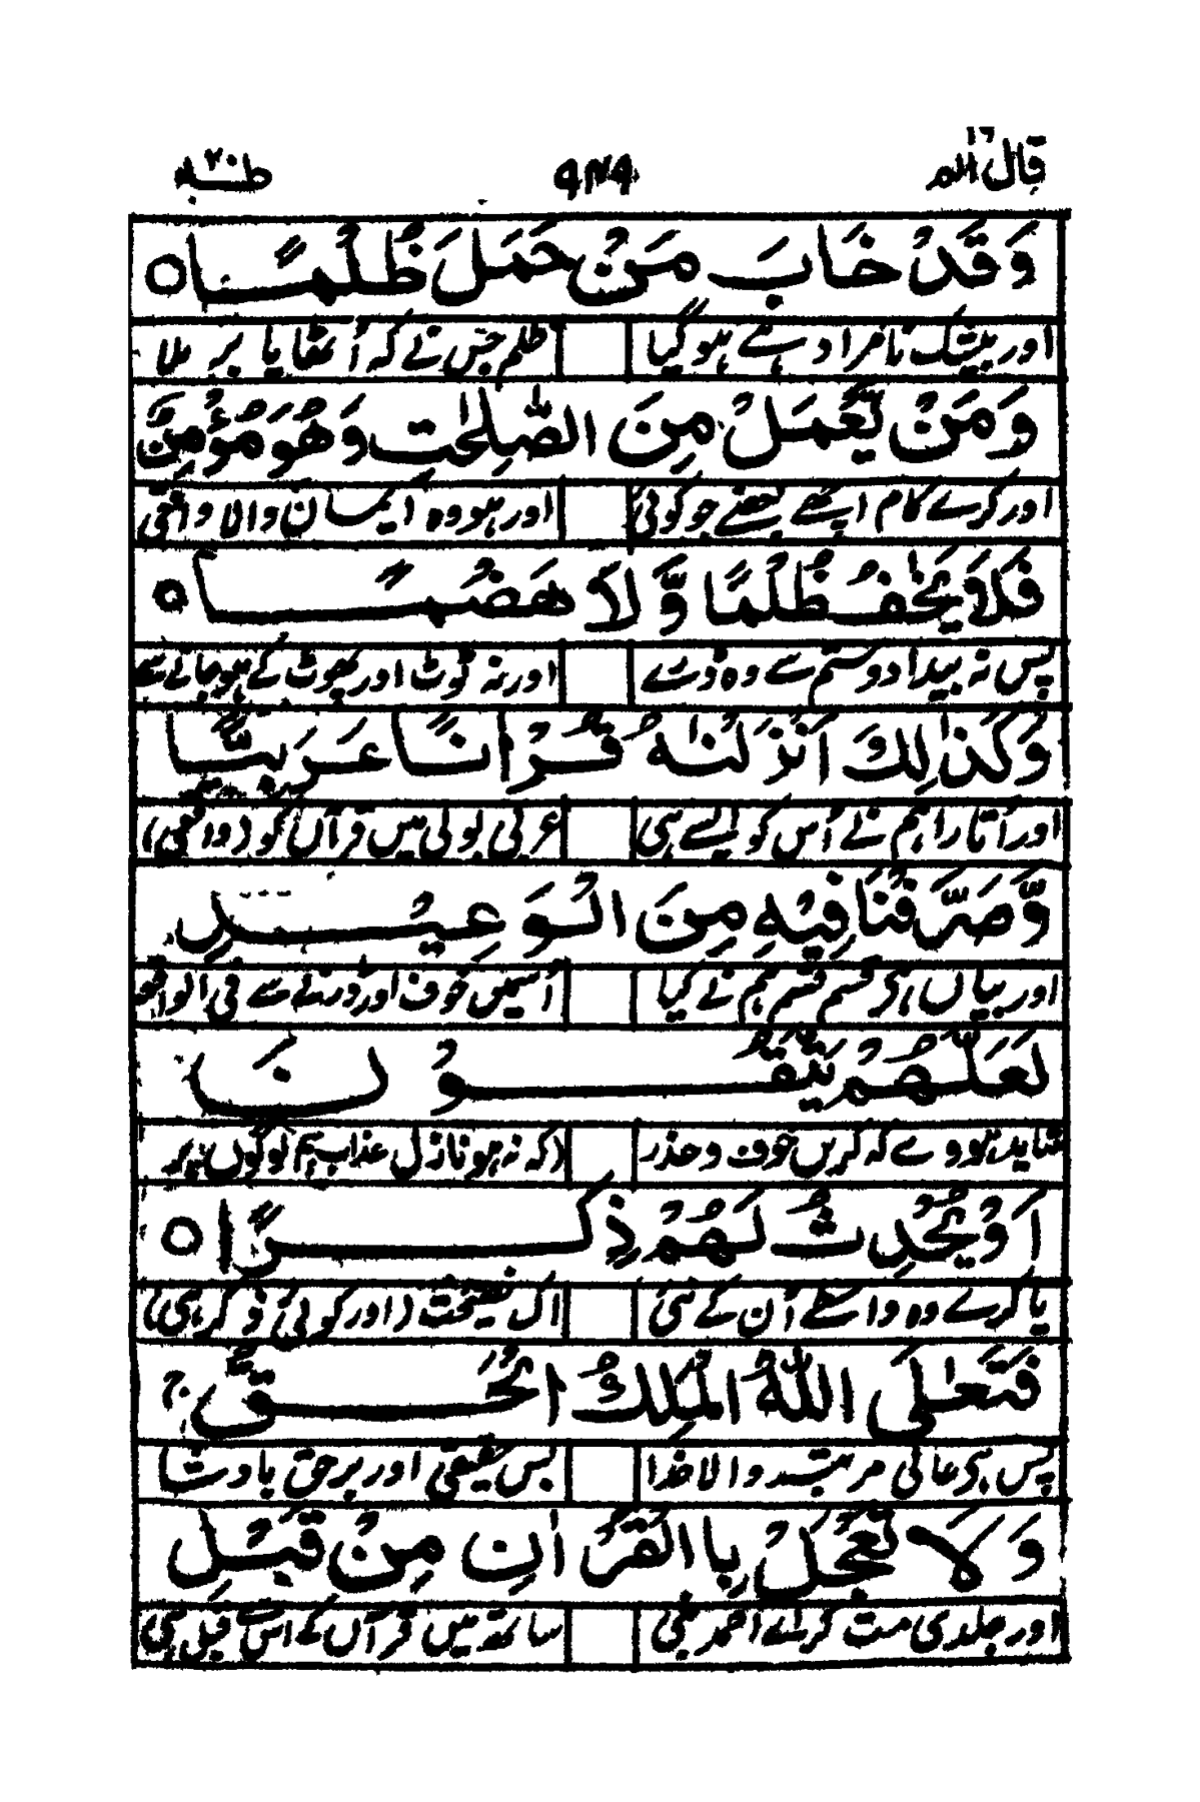 قال الم ١٦ ٩٧٩ طٰہٰ ٢٠
وَقَدْ خَابَ مَنْ حَمَلَ ظُلْمًا ○
اور بیشک نامراد ہے ہوگیا ظلم جس نے کہ اُٹھایا بر ملا
وَمَنْ يَّعْمَلْ مِنَ الصّٰلِحٰتِ وَهُوَ مُؤْمِنٌ
اور کرے کام اچھے بعضے جو کوئی اور ہو وہ ایمان والا واقعی
فَلَا يَخٰفُ ظُلْمًا وَّلَا هَضْمًا ○
پس نہ بیداد و ستم سے وہ ڈرے اور نہ ٹوٹ اور پھوٹ کے ہو جانے سے
وَكَذٰلِكَ اَنْزَلْنٰهُ قُرْاٰنًا عَرَبِيًّا
اور اُتارا ہم نے اُس کو ایسے ہی عربی بولی میں قرآں کو (واقعی)
وَّصَرَّفْنَا فِيْهِ مِنَ الْوَعِيْدِ
اور بیاں ہر قسم قسم ہم نے کیا اُسمیں خوف اور ڈرنے سے فی الواقعہ
لَعَلَّهُمْ يَتَّقُوْنَ
شاید ہووے کہ کریں خوف و حذر (کہ نہ ہو نازل عذاب ہم لوگوں پر
اَوْ يُحْدِثُ لَهُمْ ذِكْرًا ○
یا کرے وہ واسطے اُن کے نئی اک نصیحت (اور کوئی ذکر ہی)
فَتَعٰلَى اللّٰهُ الْمَلِكُ الْحَقُّ ج
پس ہے عالی مرتبہ والا خدا بس حقیقی اور برحق بادشا
وَلَا تَعْجَلْ بِالْقُرْاٰنِ مِنْ قَبْلِ
اور جلدی مت کر اے احمد نبی ساتھ میں قرآں کے اس قبل ہی